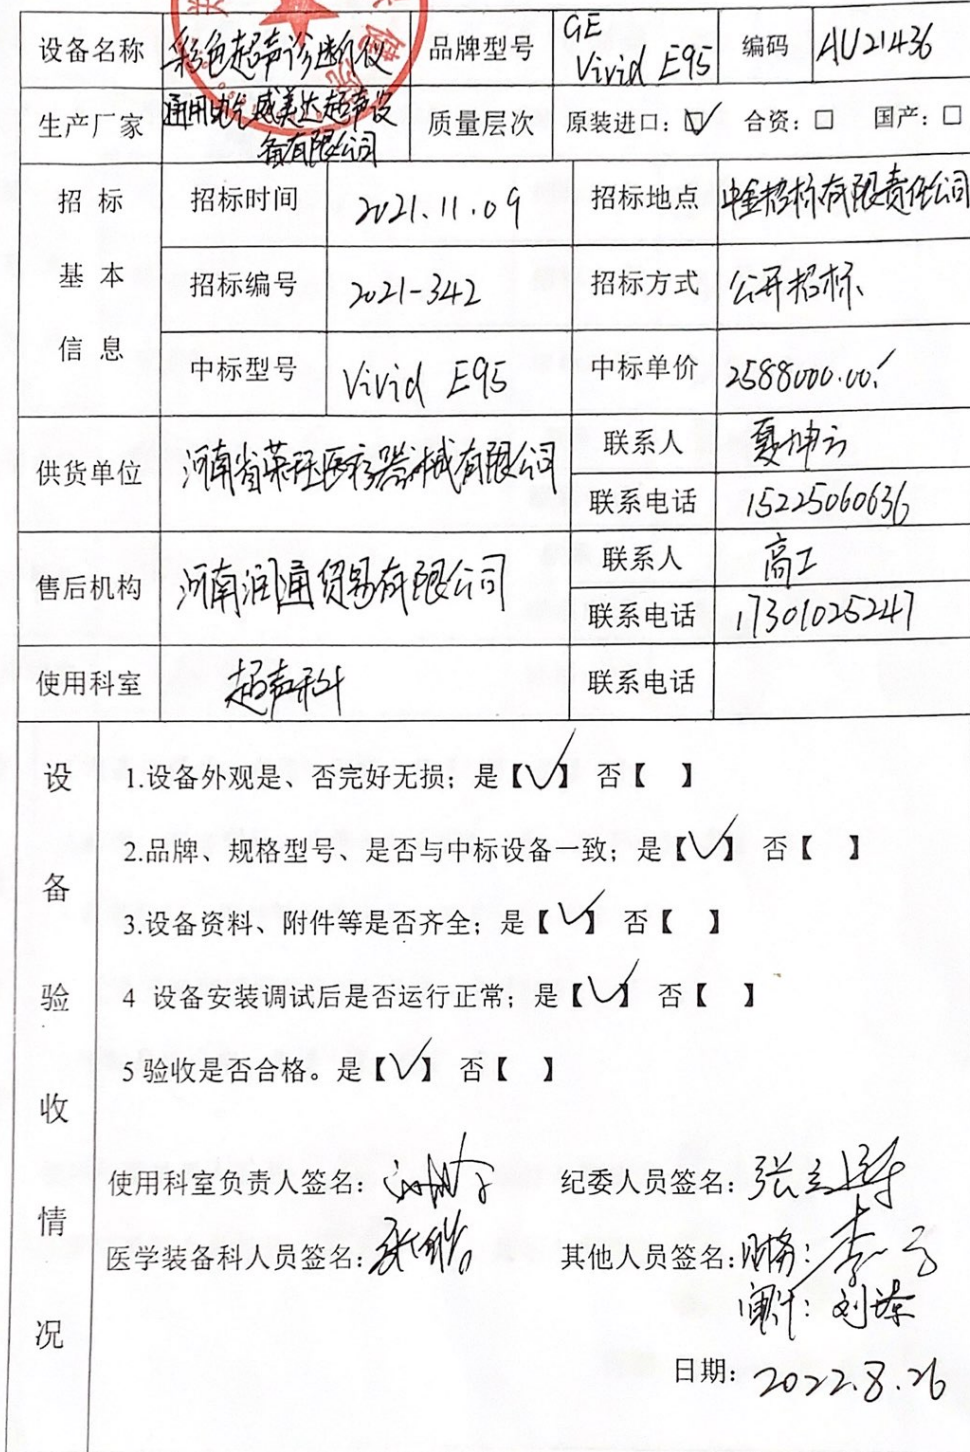 设备名称 彩色超声诊断仪 品牌型号 GE Vivid E95 编码 AU21436
生产厂家 通用电气威美达超声设备有限公司 质量层次 原装进口：☑ 合资：□ 国产：□
招标基本信息
招标时间 2021.11.09 招标地点 中金招标有限责任公司
招标编号 2021-342 招标方式 公开招标
中标型号 Vivid E95 中标单价 2588000.00
供货单位 河南省荣珏医疗器械有限公司 联系人 夏坤方
联系电话 15225060636
售后机构 河南润通贸易有限公司 联系人 高工
联系电话 17301025247
使用科室 超声科 联系电话
设备验收情况
1.设备外观是、否完好无损；是【√】 否【 】
2.品牌、规格型号、是否与中标设备一致；是【√】 否【 】
3.设备资料、附件等是否齐全；是【√】 否【 】
4 设备安装调试后是否运行正常；是【√】 否【 】
5 验收是否合格。是【√】 否【 】
使用科室负责人签名： 纪委人员签名：张
医学装备科人员签名：张 其他人员签名：财务：李
审计：刘
日期：2022.8.26